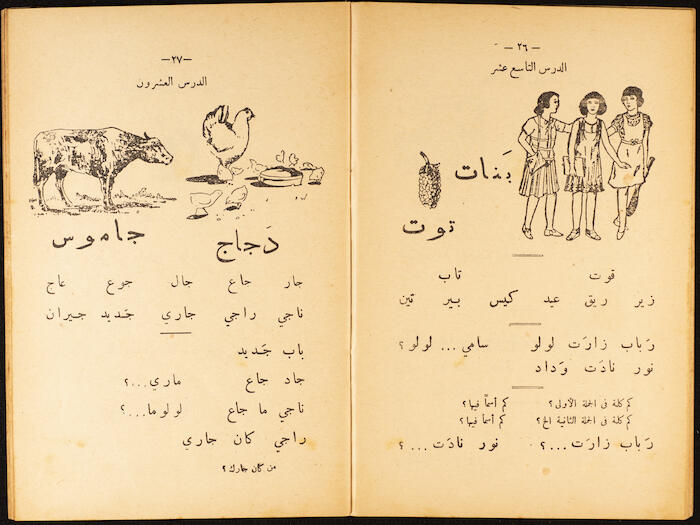 — ٢٦ —
الدرس التاسع عشر
بَنات
توت
قوت تاب
زير ريق عيد كيس بير تين
رَباب زارَت لولو سامي... لولو؟
نور نادَت وَداد
كم كلمة فى الجملة الأولى؟ كم أسماً فيها؟
كم كلمة فى الجملة الثانية الخ؟ كم أسما فيها؟
رَباب زارَت...؟ نور نادَت...؟
—٢٧—
الدرس العشرون
دَجاج
جاموس
جار جاع جال جوع عاج
ناجي راجي جاري جَديد جيران
باب جَديد
جاد جاع ماري...؟
ناجي ما جاع لولو ما...؟
راجي كان جاري
من كان جارك؟